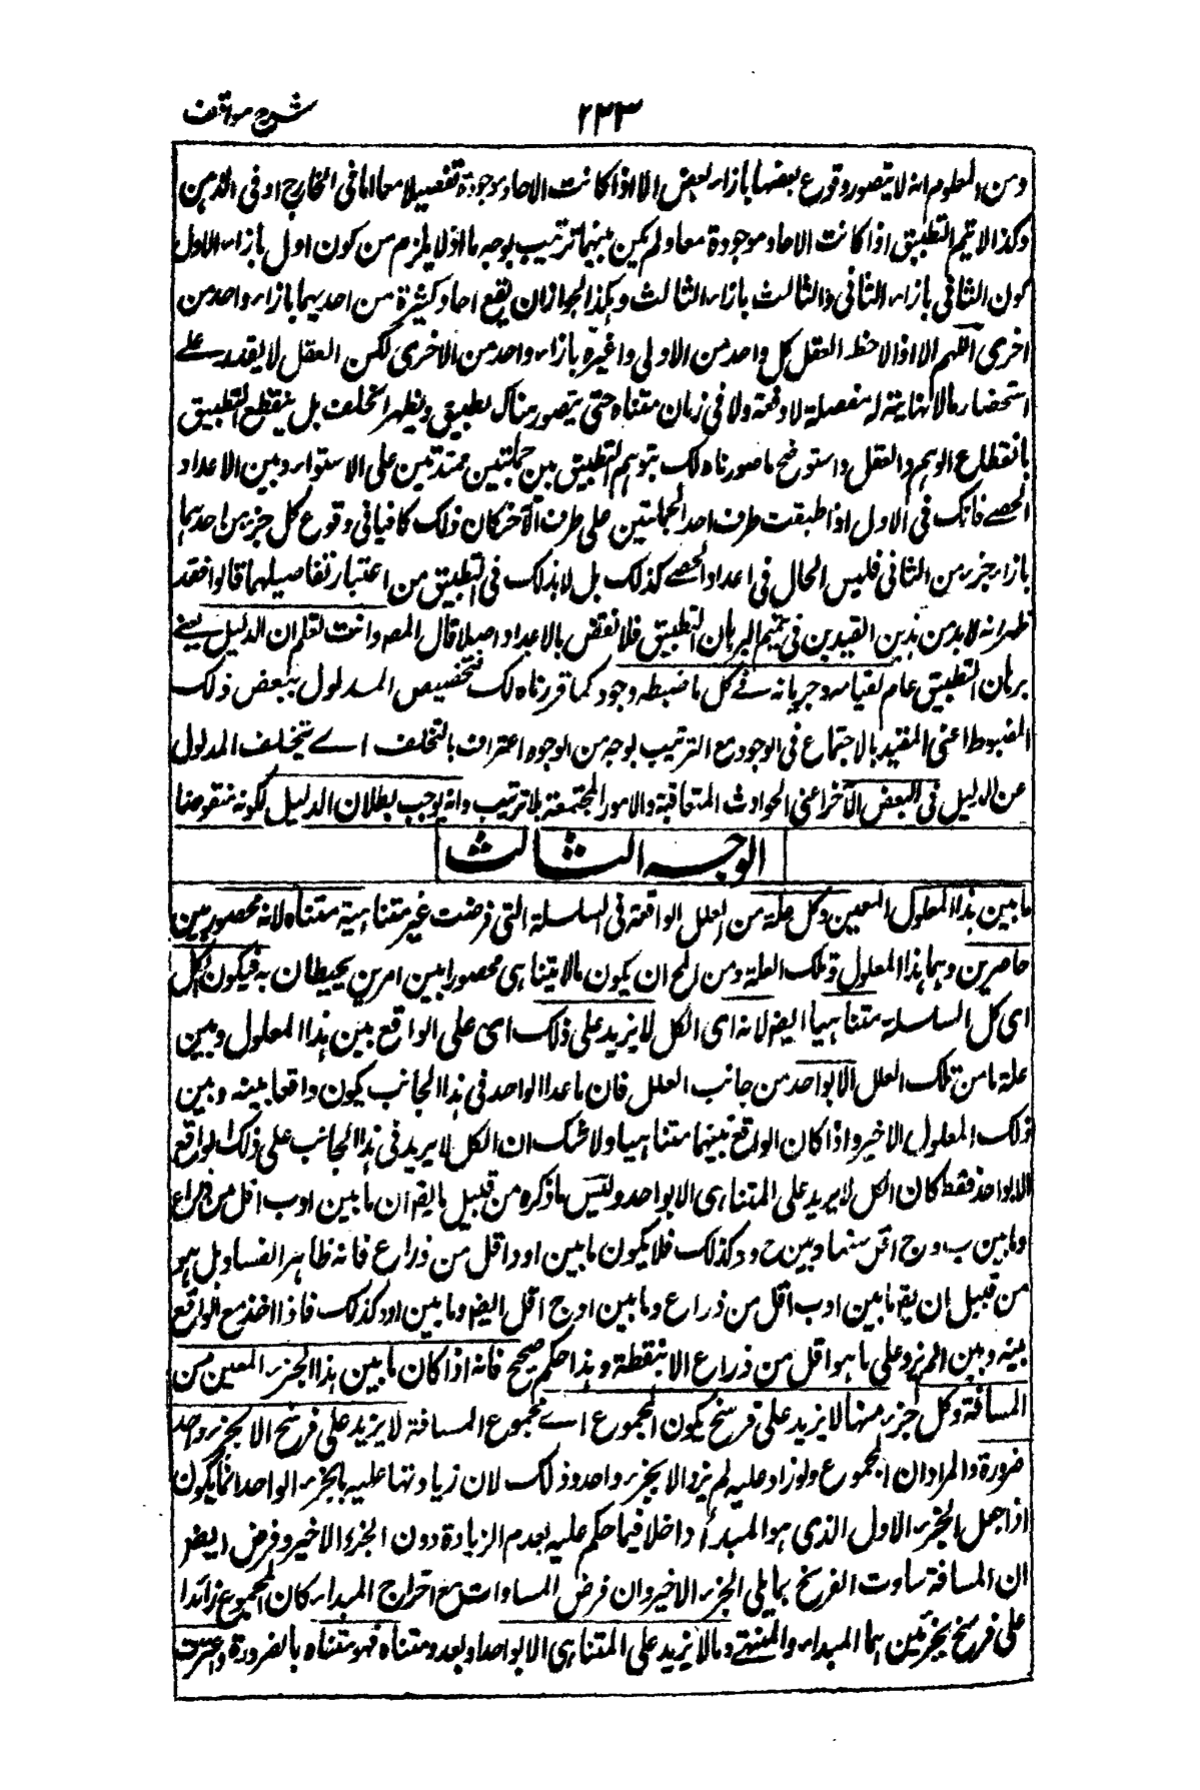 شرح مواقف
۲۳۳
ومن المعلوم انه لا يتصور وقوع بعضها بازاء بعض الا اذا كانت الاحاد موجودة تفصيلا معا اما فى الخارج او فى الذهن
وكذا لا يتم التطبيق اذا كانت الاحاد موجودة معا ولم يكن بينهما ترتيب بوجه ما اذ لا يلزم من كون اول بازاء الاول
كون الثانى بازاء الثانى والثالث بازاء الثالث وهكذا لجواز ان يقع احاد كثيرة من احديهما بازاء واحد من
اخرى اللهم الا اذا لاحظ العقل كل واحد من الاولى واعتبره بازاء واحد من الاخرى لكن العقل لا يقدر على
استحضار ما لا نهاية له مفصلة لا دفعة ولا فى زمان متناه حتى يتصور هناك تطبيق ويظهر الخلف بل ينقطع التطبيق
بانقطاع الوهم والعقل واستوضح ما صورناه لك بتوهم التطبيق بين حبلين ممتدين على الاستواء وبين الاعداد
الحصے فانك فى الاول اذا طبقت طرف احد الحبلين على طرف الآخر كان ذلك كافيا فى وقوع كل جزء من احديهما
بازاء جزء من الثانى فليس الحال فى اعداد الحصے كذلك بل لا بد لك فى التطبيق من اعتبار تفاصيلها قالوا فقد
ظهر انه لا بد من هذين القيدين فى تتميم البرهان التطبيق فلا نقض بالاعداد اصلا قال المصه وانت تعلم ان الدليل يعنے
برهان التطبيق عام لقيامه وجريانه فے كل ما ضبطه وجود كما قررناه لك فتخصيص المدلول ببعض ذلك
المضبوط اعنى المقيد بالاجتماع فى الوجود مع الترتيب لوجه من الوجوه اعتراف بالتخلف اے بتخلف المدلول
عن الدليل فى البعض الآخر اعنى الحوادث المتعاقبة والامور المجتمعة بلا ترتيب وانه يوجب بطلان الدليل لكونه منقوضا
الوجه الثالث
ما بين هذا المعلول المعين وكل علة من العلل الواقعة فى السلسلة التى فرضت غير متناهية متناه لانه محصور بين
حاصرين وهما هذا المعلول وتلك العلة ومن المح ان يكون ما لا يتناهى محصورا بين امرين يحيطان به فيكون الكل
اى كل السلسلة متناهيا ايضا لانه اى الكل لا يزيد على ذلك اى على الواقع بين هذا المعلول وبين
علة ما من تلك العلل الا بواحد من جانب العلل فان ما عدا الواحد فى هذا الجانب يكون واقعا بينه وبين
ذلك المعلول الاخير واذا كان الواقع بينهما متناهيا ولا شك ان الكل لا يزيد فى هذا الجانب على ذلك الواقع
الا بواحد فقط كان الكل لا يزيد على المتناهى الا بواحد وليس ما ذكره من قبيل ما يقه ان ما بين ا وب اقل من ذراع
وما بين ب وج اقل منها وبين ح ود كذلك فلا يكون ما بين ا ود اقل من ذراع فانه ظاهر الفساد بل هو
من قبيل ان يقه ما بين ا وب اقل من ذراع وما بين ا وج اقل ايضا وما بين ا ود كذلك فاذا اخذ مع الواقع
بينه وبين لم يزد على ما هو اقل من ذراع الا بنقطة وهذا حكم صحيح فانه اذا كان ما بين هذا الجزء المعين من
المسافة وكل جزء منها لا يزيد على فرسخ يكون المجموع اے مجموع المسافة لا يزيد على فرسخ الا بجزء واحد
ضرورة والمراد ان المجموع ولو زاد عليه لم يزد الا بجزء واحد وذلك لان زيادتها عليه بالجزء الواحد انما يكون
اذا جعل الجزء الاول الذى هو المبدأ داخلا فيما حكم عليه بعدم الزيادة دون الجزء الاخير وفرض ايضا
ان المسافة ساوت الفرسخ بما يلى الجزء الاخير وان فرض المساوات مع اخراج المبداء كان المجموع زائدا
على فرسخ بجزئين هما المبداء والمنتهے وما لا يزيد على المتناهى الا بواحد او بعدد متناه فهو متناه بالضرورة واعترض